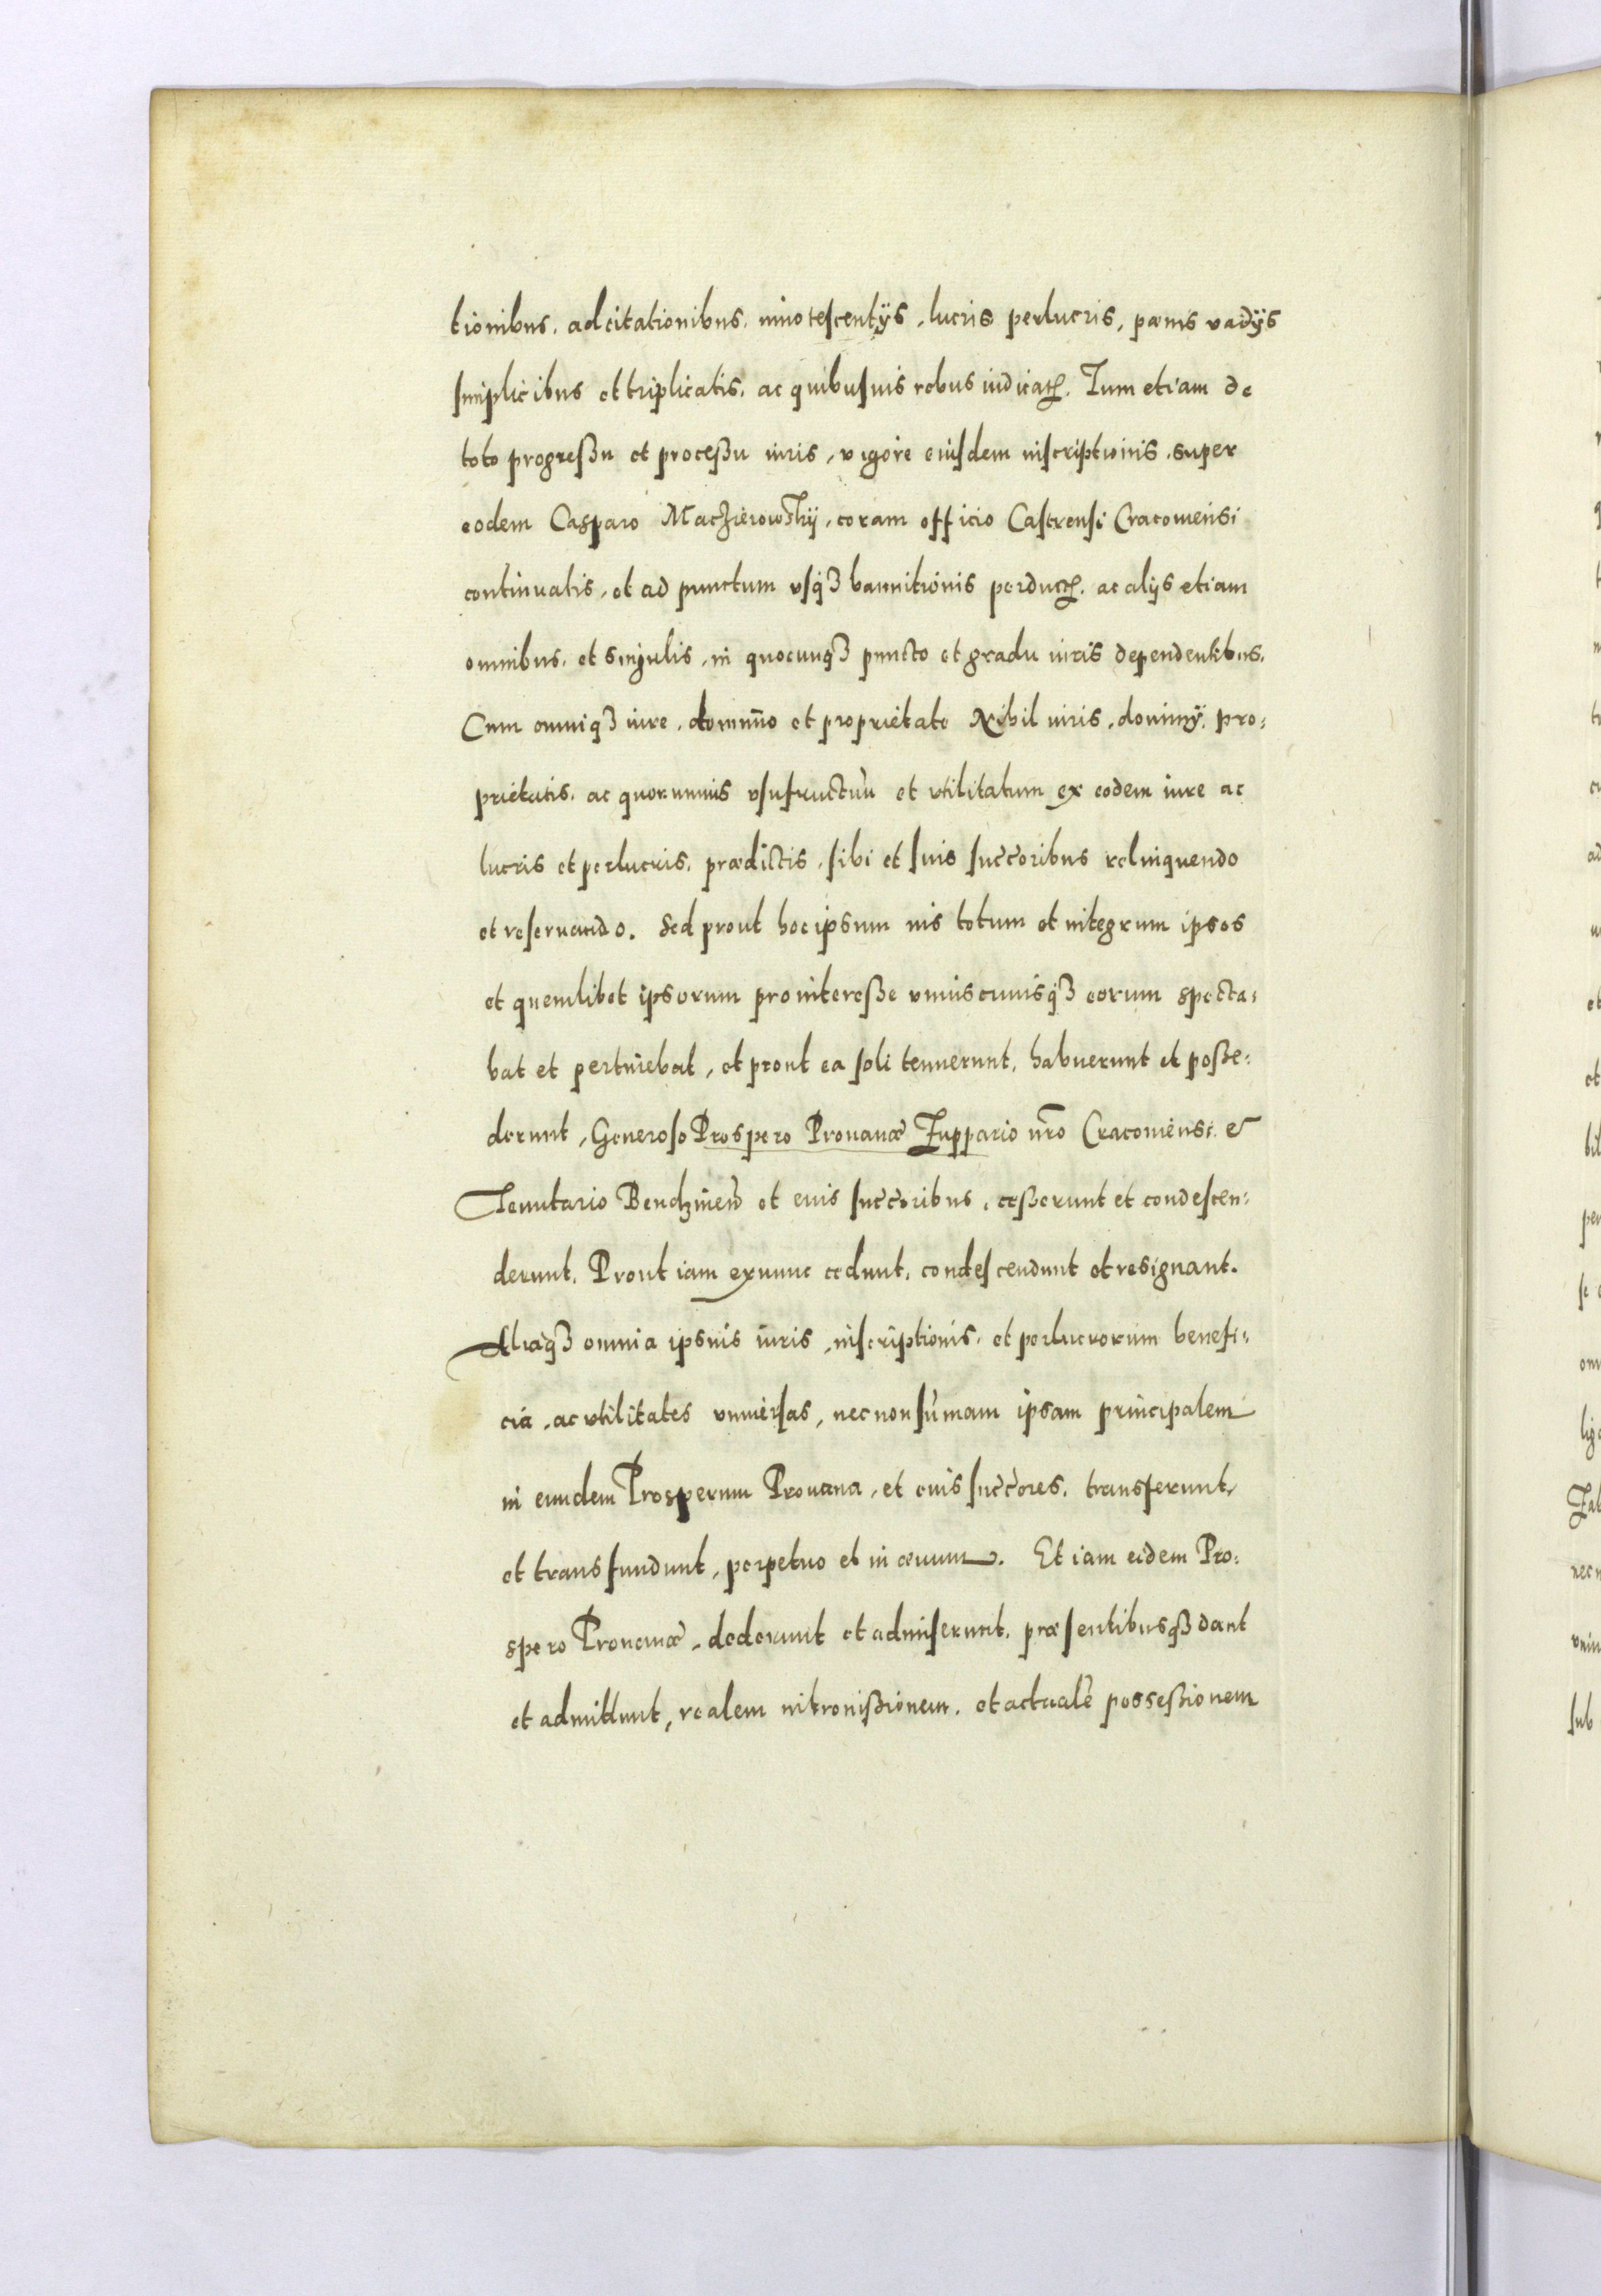 tionibus, adcitationibus, innotescentÿs, lucris perlucris, pœnis vadÿs
simplicibus et triplicatis, ac quibusuis rebus iudicatꝭ. Tum etiam de
toto progreßu et proceßu iuris, vigore eiusdem inscriptionis, super
eodem Casparo Machierowskÿ, coram officio Castrensi Cracouiensi
continuatis, et ad punctum vsqꝫ bannitionis perductꝭ. ac alÿs etiam
omnibus, et singulis, in quocunqꝫ puncto et gradu iuris dependentibus.
Cum omniqꝫ iure, dominio et proprietate Nihil iuris, dominÿ, pro:
prietatis, ac quorumuis vsufructuũ et vtilitatum ex eodem iure ac
lucris et perlucris, prædictis, sibi et suis succ̃oribus relinquendo
et reseruando. Sed prout hoc ipsum ius totum et integrum ipsos
et quemlibet ipsorum pro intereße vniuscuiusqꝫ eorum specta:
bat et pertinebat, et prout ea soli tenuerunt, habuerunt et poße:
derunt, Generoso Prospero Prouanæ Zuppario nr̃o Cracouiensi &
Tenutario Bendzineñ et eius succ̃oribus, ceßerunt et condescen:
derunt, Prout iam exnunc cedunt, condescendunt et resignant.
Aliaqꝫ omnia ipsius iuris, inscriptionis, et perlucrorum benefi:
cia, ac vtilitates vniuersas, nec non sum̃am ipsam principalem
in eundem Prosperum Prouana, et eius succ̃ores, transferunt,
et transfundunt, perpetuo et in æuum. Et iam eidem Pro:
spero Prouanæ, dederunt et admiserunt, præsentibusqꝫ dant
et admittunt, realem intromißionem, et actualẽ possessionem